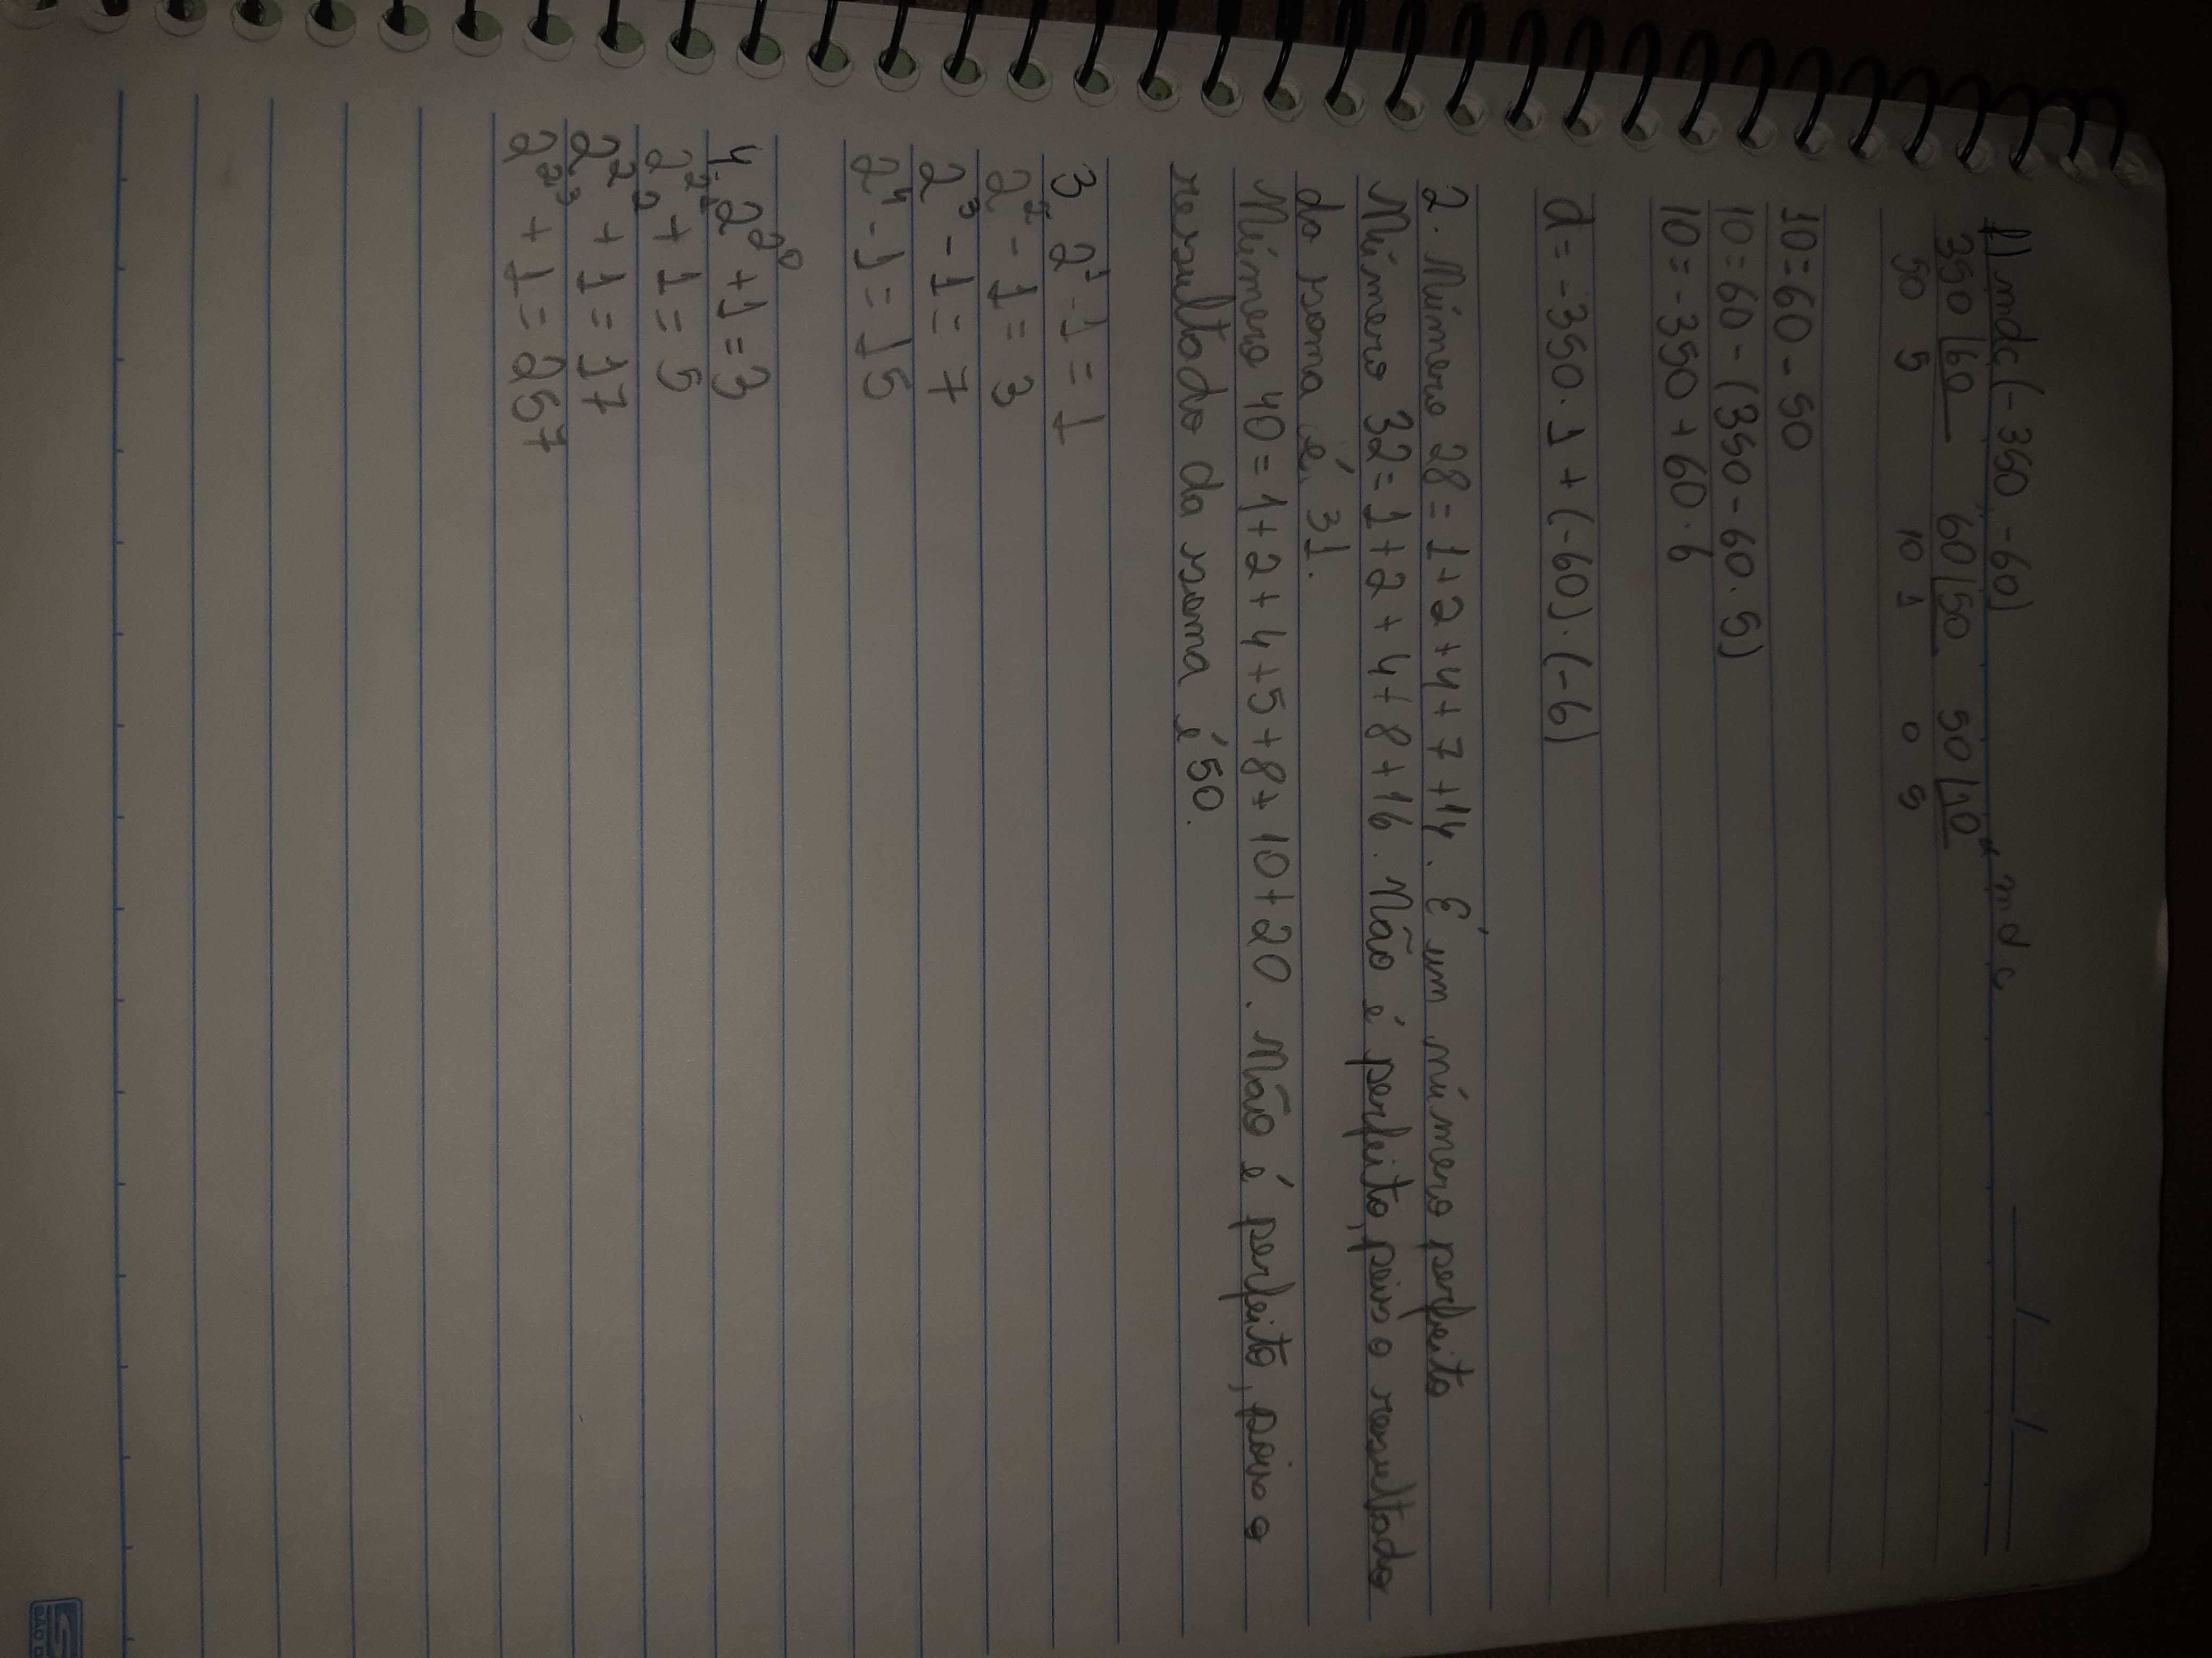 f) mdc (-350, -60)
350 | 60   60 | 50   50 | 10 mdc
50 5   10 1   0 5
10 = 60 - 50
10 = 60 - (350 - 60 . 5)
10 = -350 + 60 . 6
d = -350 . 1 + (-60) . (-6)
2. Número 28 = 1 + 2 + 4 + 7 + 14. É um número perfeito
Número 32 = 1 + 2 + 4 + 8 + 16. Não é perfeito, pois o resultado
da soma é 31.
Número 40 = 1 + 2 + 4 + 5 + 8 + 10 + 20. Não é perfeito, pois o
resultado da soma é 50.
3. 2¹ - 1 = 1
2² - 1 = 3
2³ - 1 = 7
2⁴ - 1 = 15
4. 2^2^0 + 1 = 3
2^2^1 + 1 = 5
2^2^2 + 1 = 17
2^2^3 + 1 = 257